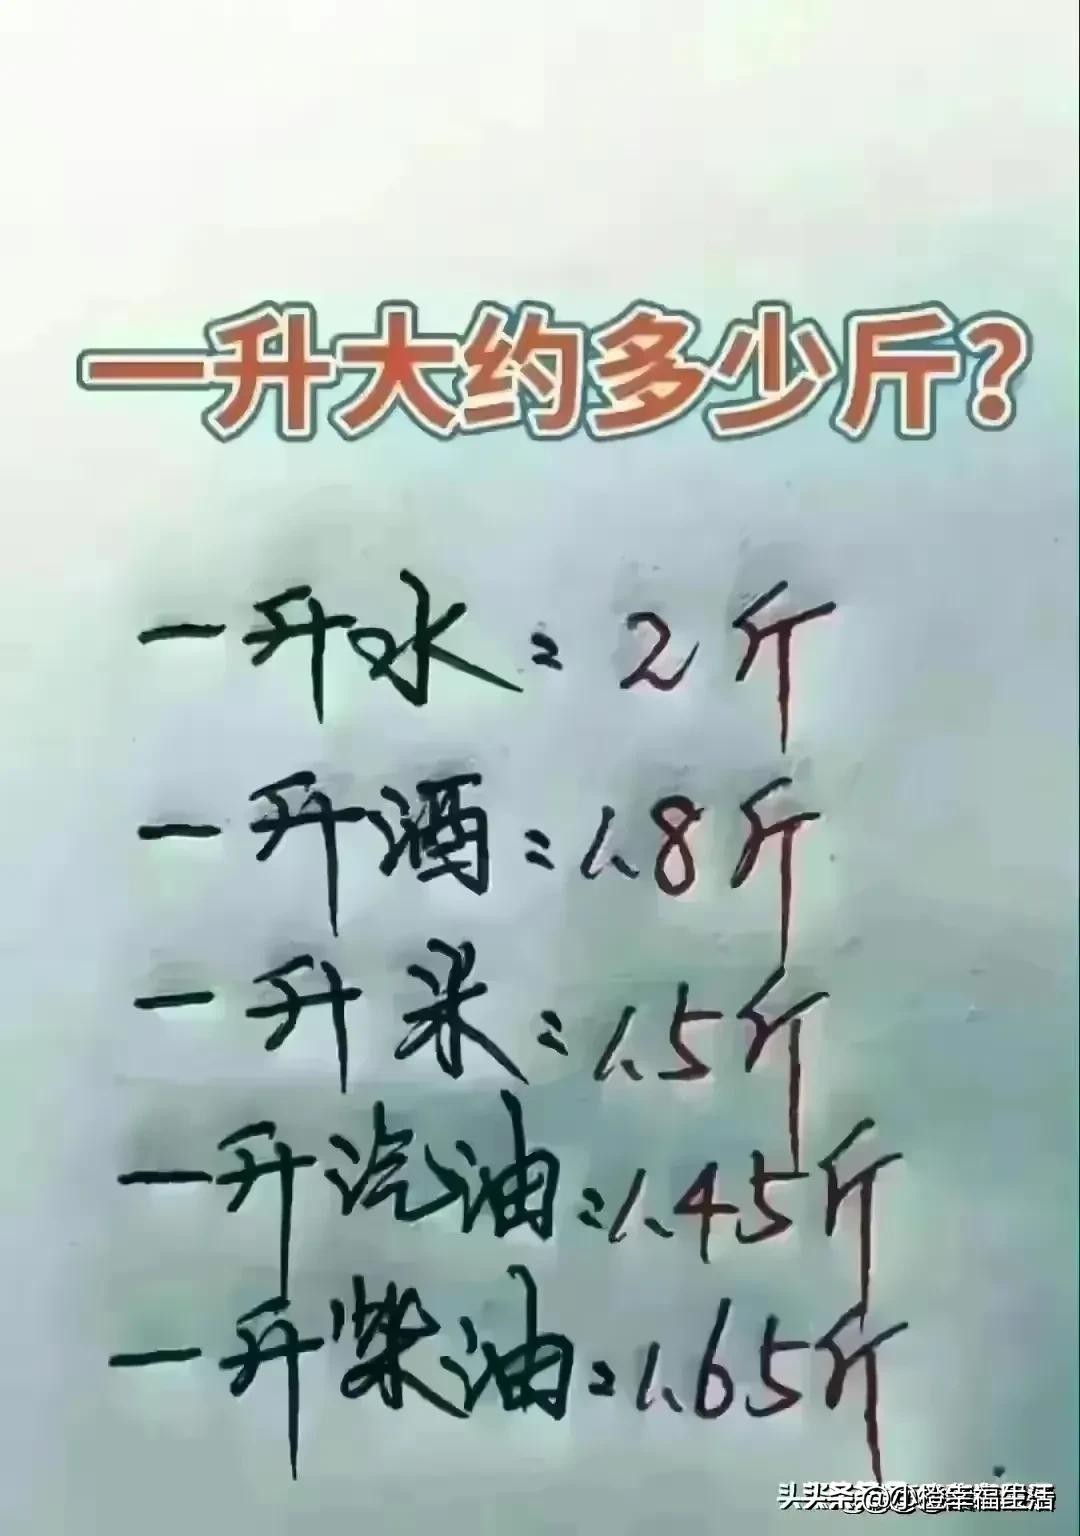 一升大约多少斤?
一升水=2斤
一升酒=1.8斤
一升米=1.5斤
一升汽油=1.45斤
一升柴油=1.65斤
头条 @小橙幸福生活